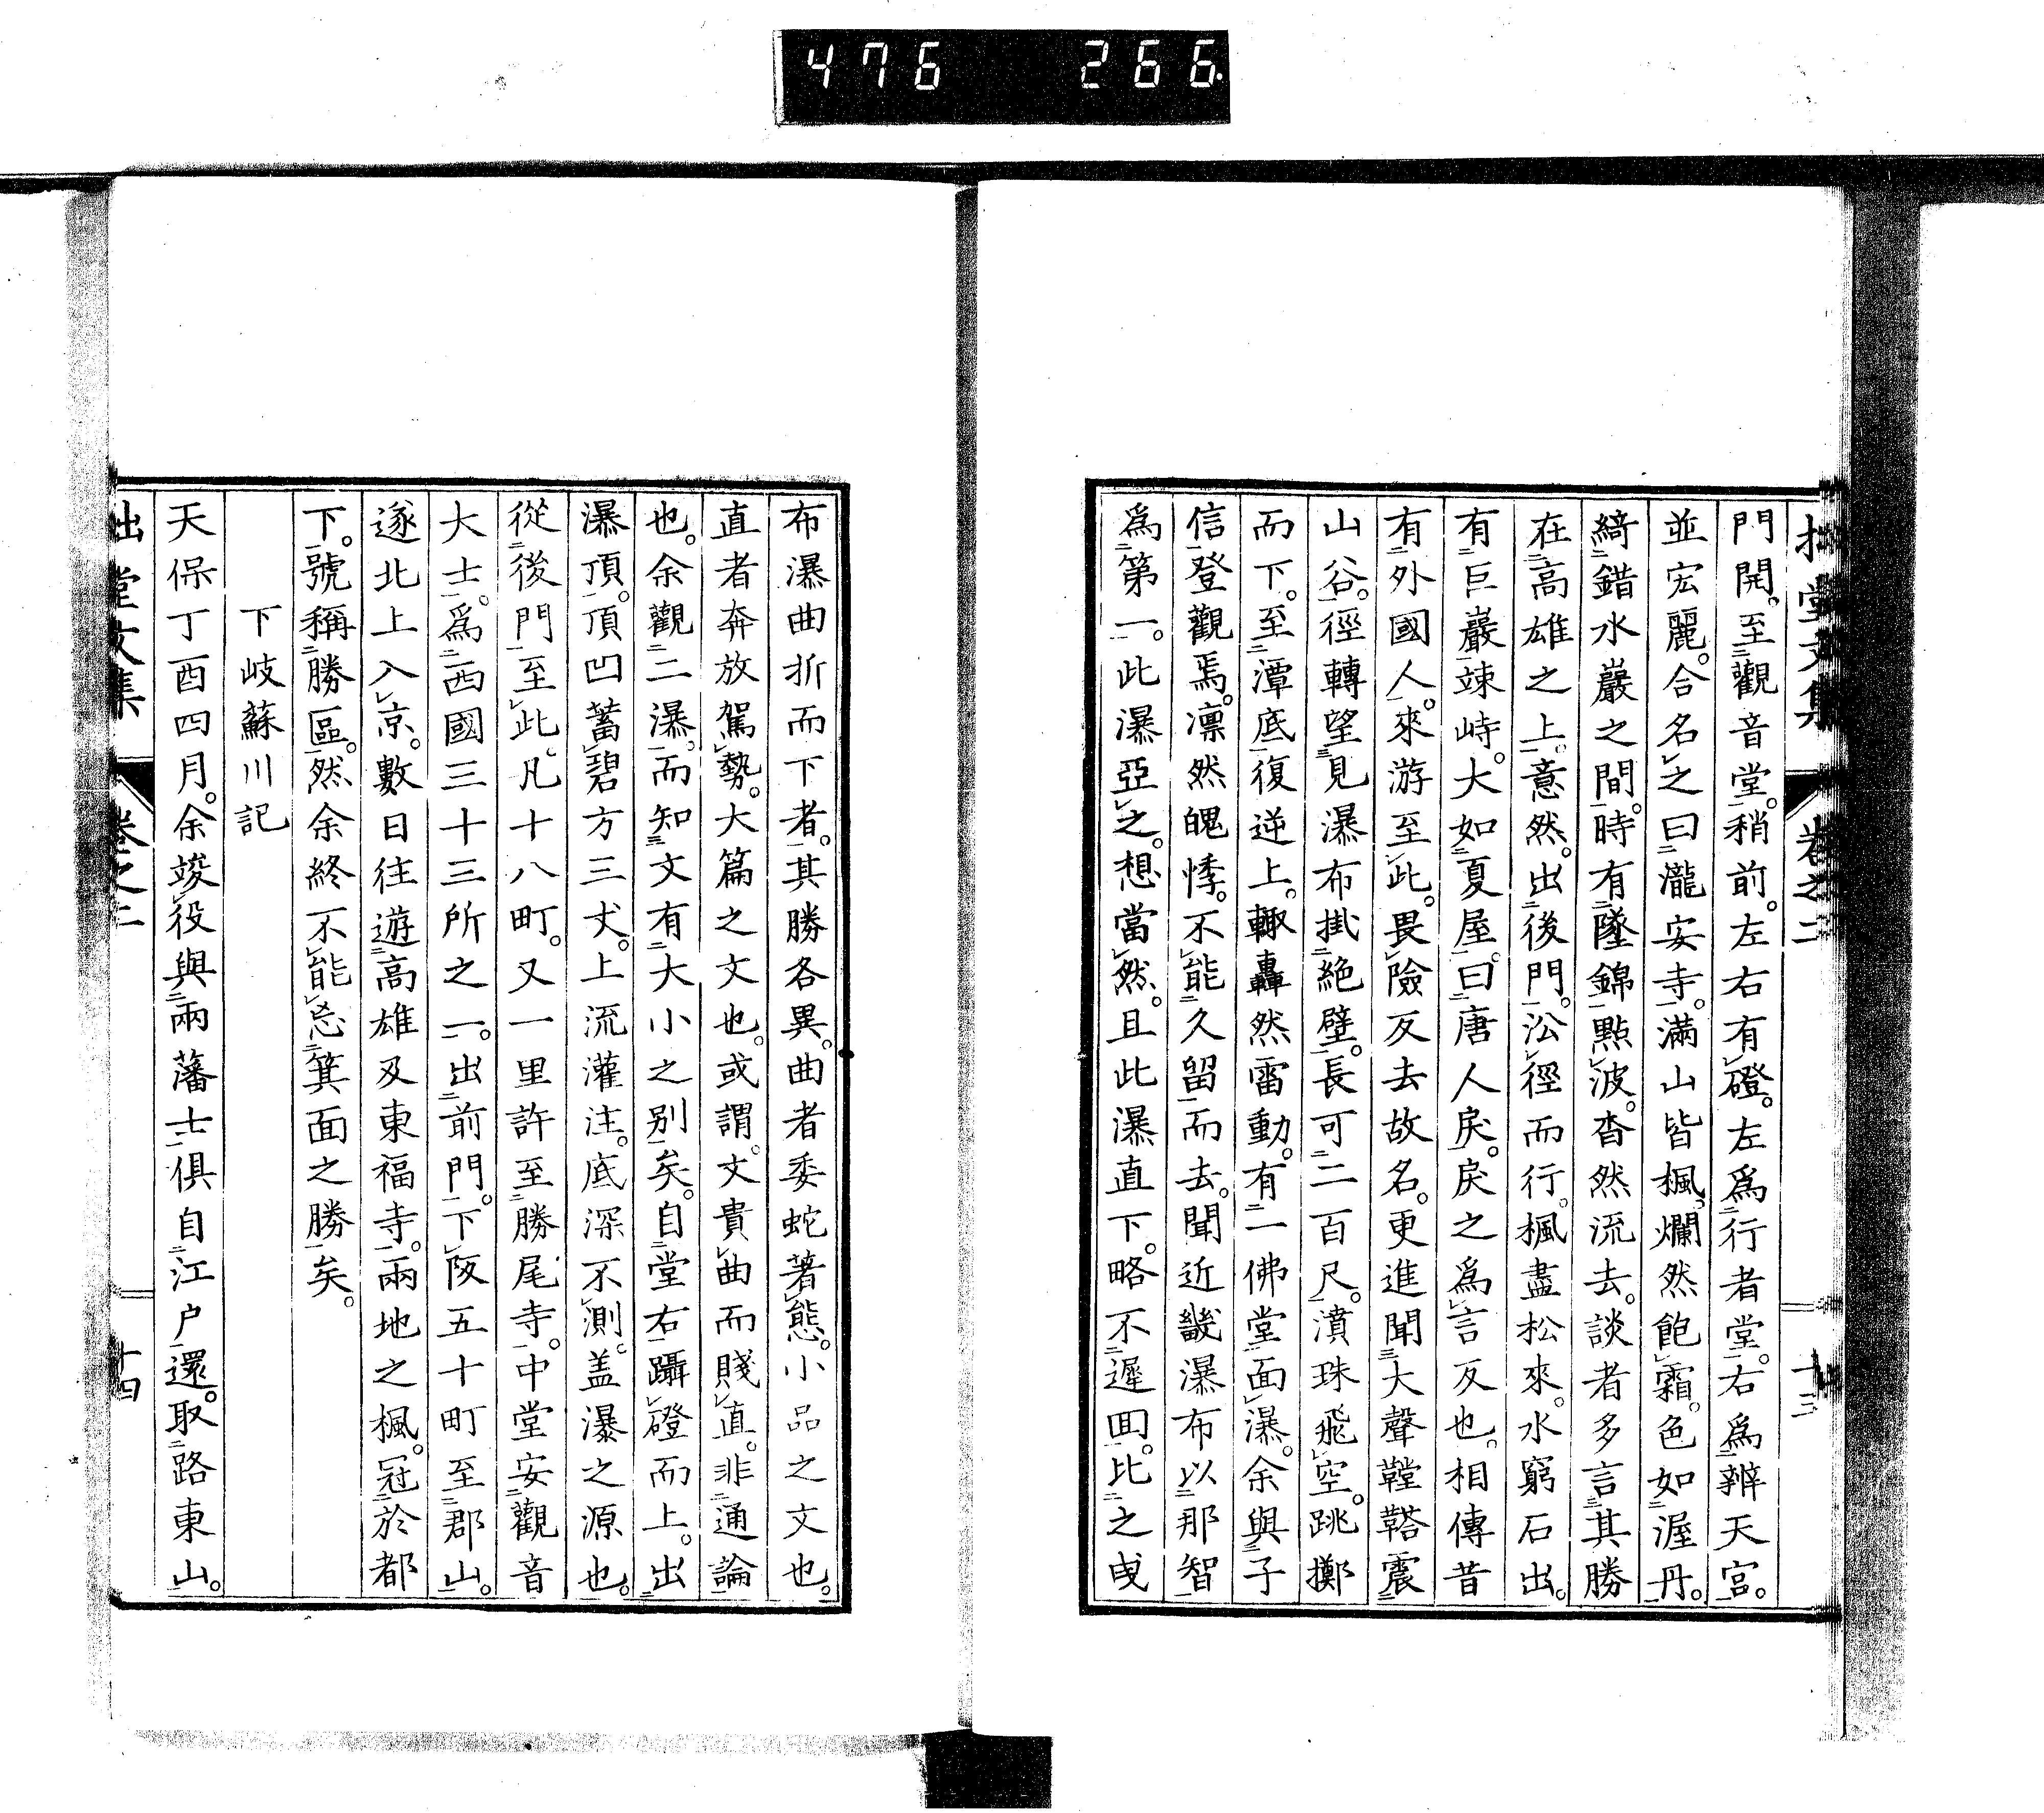 476 266
拙堂文集 卷之二 十三
門開。至觀音堂。稍前。左右有磴。左爲行者堂。右爲辨天宮。
並宏麗。合名之曰瀧安寺。滿山皆楓、爛然飽霜。色如渥丹。
綺錯水巖之間。時有墜錦點波。杳然流去。談者多言其勝
在高雄之上。意然。出後門。沿徑而行。楓盡松來。水窮石出。
有巨巖竦峙。大如夏屋。曰唐人戾。戾之爲言反也。相傳昔
有外國人。來游至此。畏險反去故名。更進聞大聲鞺鞳震
山谷。徑轉望見瀑布掛絕壁。長可二百尺。濆珠飛空。跳擲
而下。至潭底復逆上。輷轟然雷動。有一佛堂面瀑。余與子
信登觀焉。凛然魄悸。不能久留而去。聞近畿瀑布以那智
爲第一。此瀑亞之。想當然。且此瀑直下。略不遲回。比之曳
布瀑曲折而下者。其勝各異。曲者委蛇著態。小品之文也。
直者奔放駕勢。大篇之文也。或謂。文貴曲而賤直。非通論
也。余觀二瀑。而知文有大小之別矣。自堂右躡磴而上。出
瀑頂。頂凹蓄碧方三丈。上流灌注。底深不測。盖瀑之源也。
從後門至此。凡十八町。又一里許至勝尾寺。中堂安觀音
大士。爲西國三十三所之一。出前門。下阪五十町至郡山。
遂北上入京。數日往遊高雄及東福寺。兩地之楓。冠於都
下。號稱勝區。然余終不能忘箕面之勝矣。
下岐蘇川記
天保丁酉四月。余竣役與兩藩士俱自江戶還。取路東山。
拙堂文集 卷之二 十四